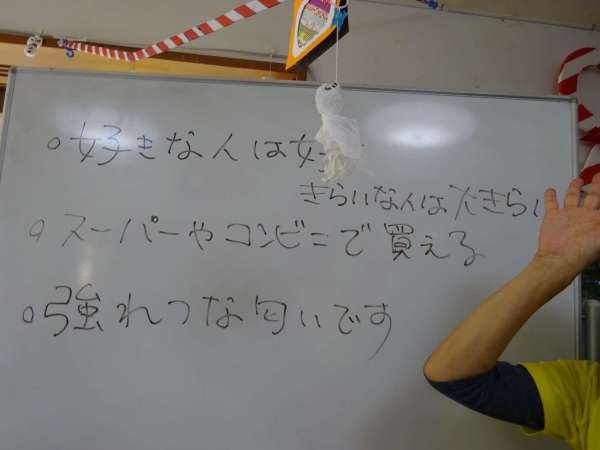 ○好きな人は好
きらいな人は大きらい
○スーパーやコンビニで買える
○強れつな匂いです